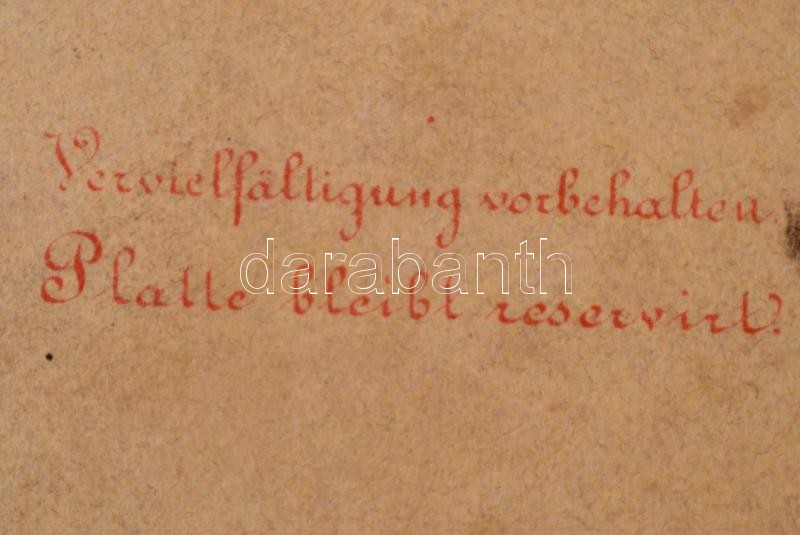 Vervielfältigung vorbehalten.
Platte bleibt reservirt.
darabanth